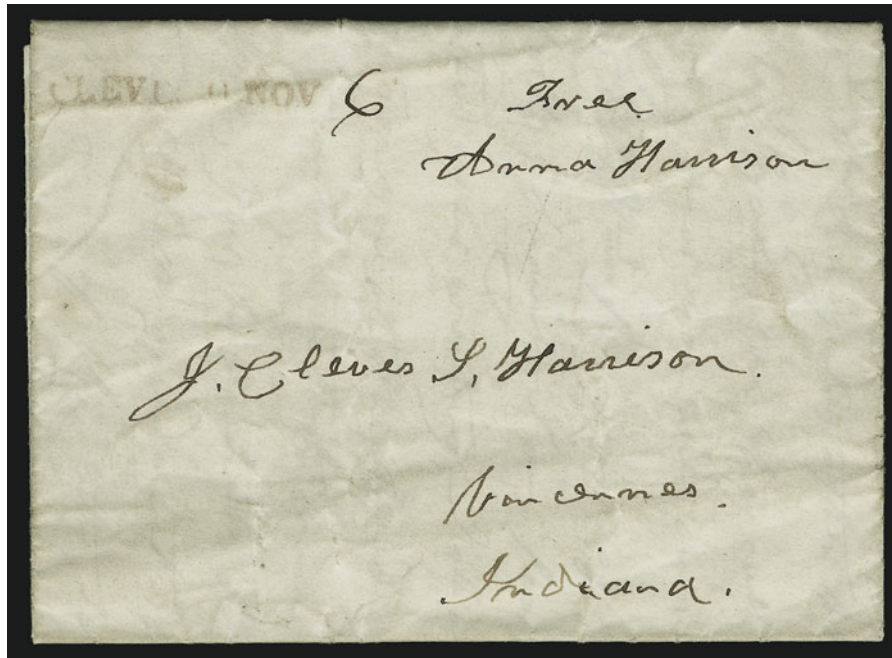 NOV 6 Free
Anna Harrison
J. Cleves S, Harrison.
Vincennes.
Indiana.